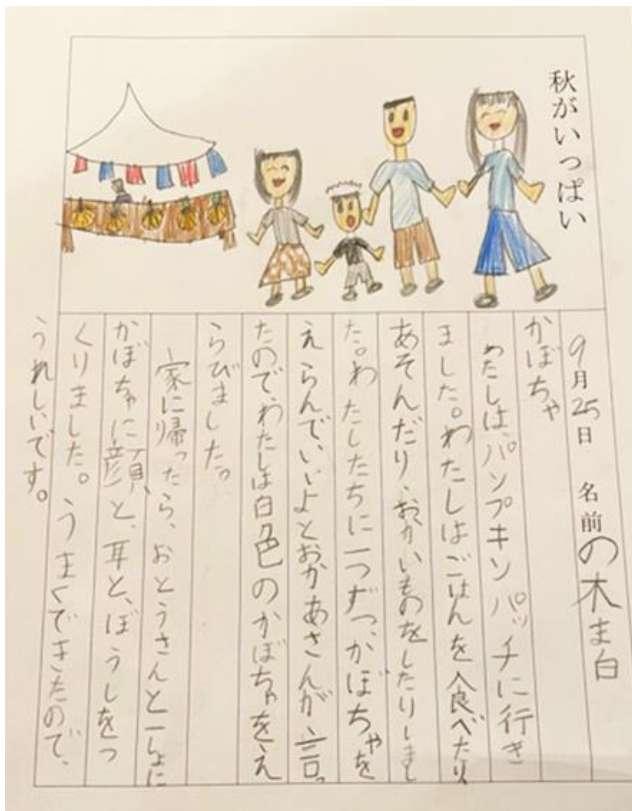 秋がいっぱい
9月25日 名前 の木ま白
かぼちゃ
わたしは、パンプキンパッチに行き
ました。わたしはごはんを食べたり
あそんだり、おかいものをしたりしまし
た。わたしたちに一つずつ、かぼちゃを
えらんで、いいよとおかあさんが言っ
たので、わたしは白色のかぼちゃをえ
らびました。
家に帰ったら、おとうさんと一しょに
かぼちゃに顔と、耳と、ぼうしをつ
くりました。うまくできたので、
うれしいです。